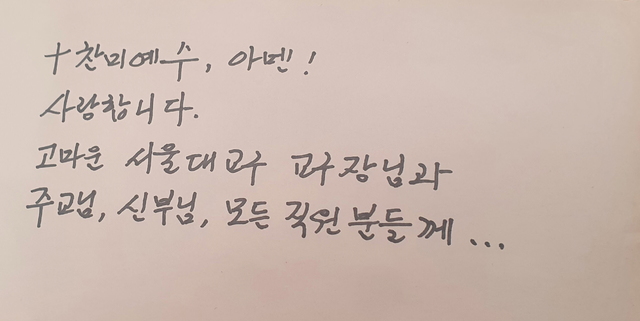 †찬미예수, 아멘!
사랑합니다.
고마운 서울대교구 교구장님과
주교님, 신부님, 모든 직원분들께...